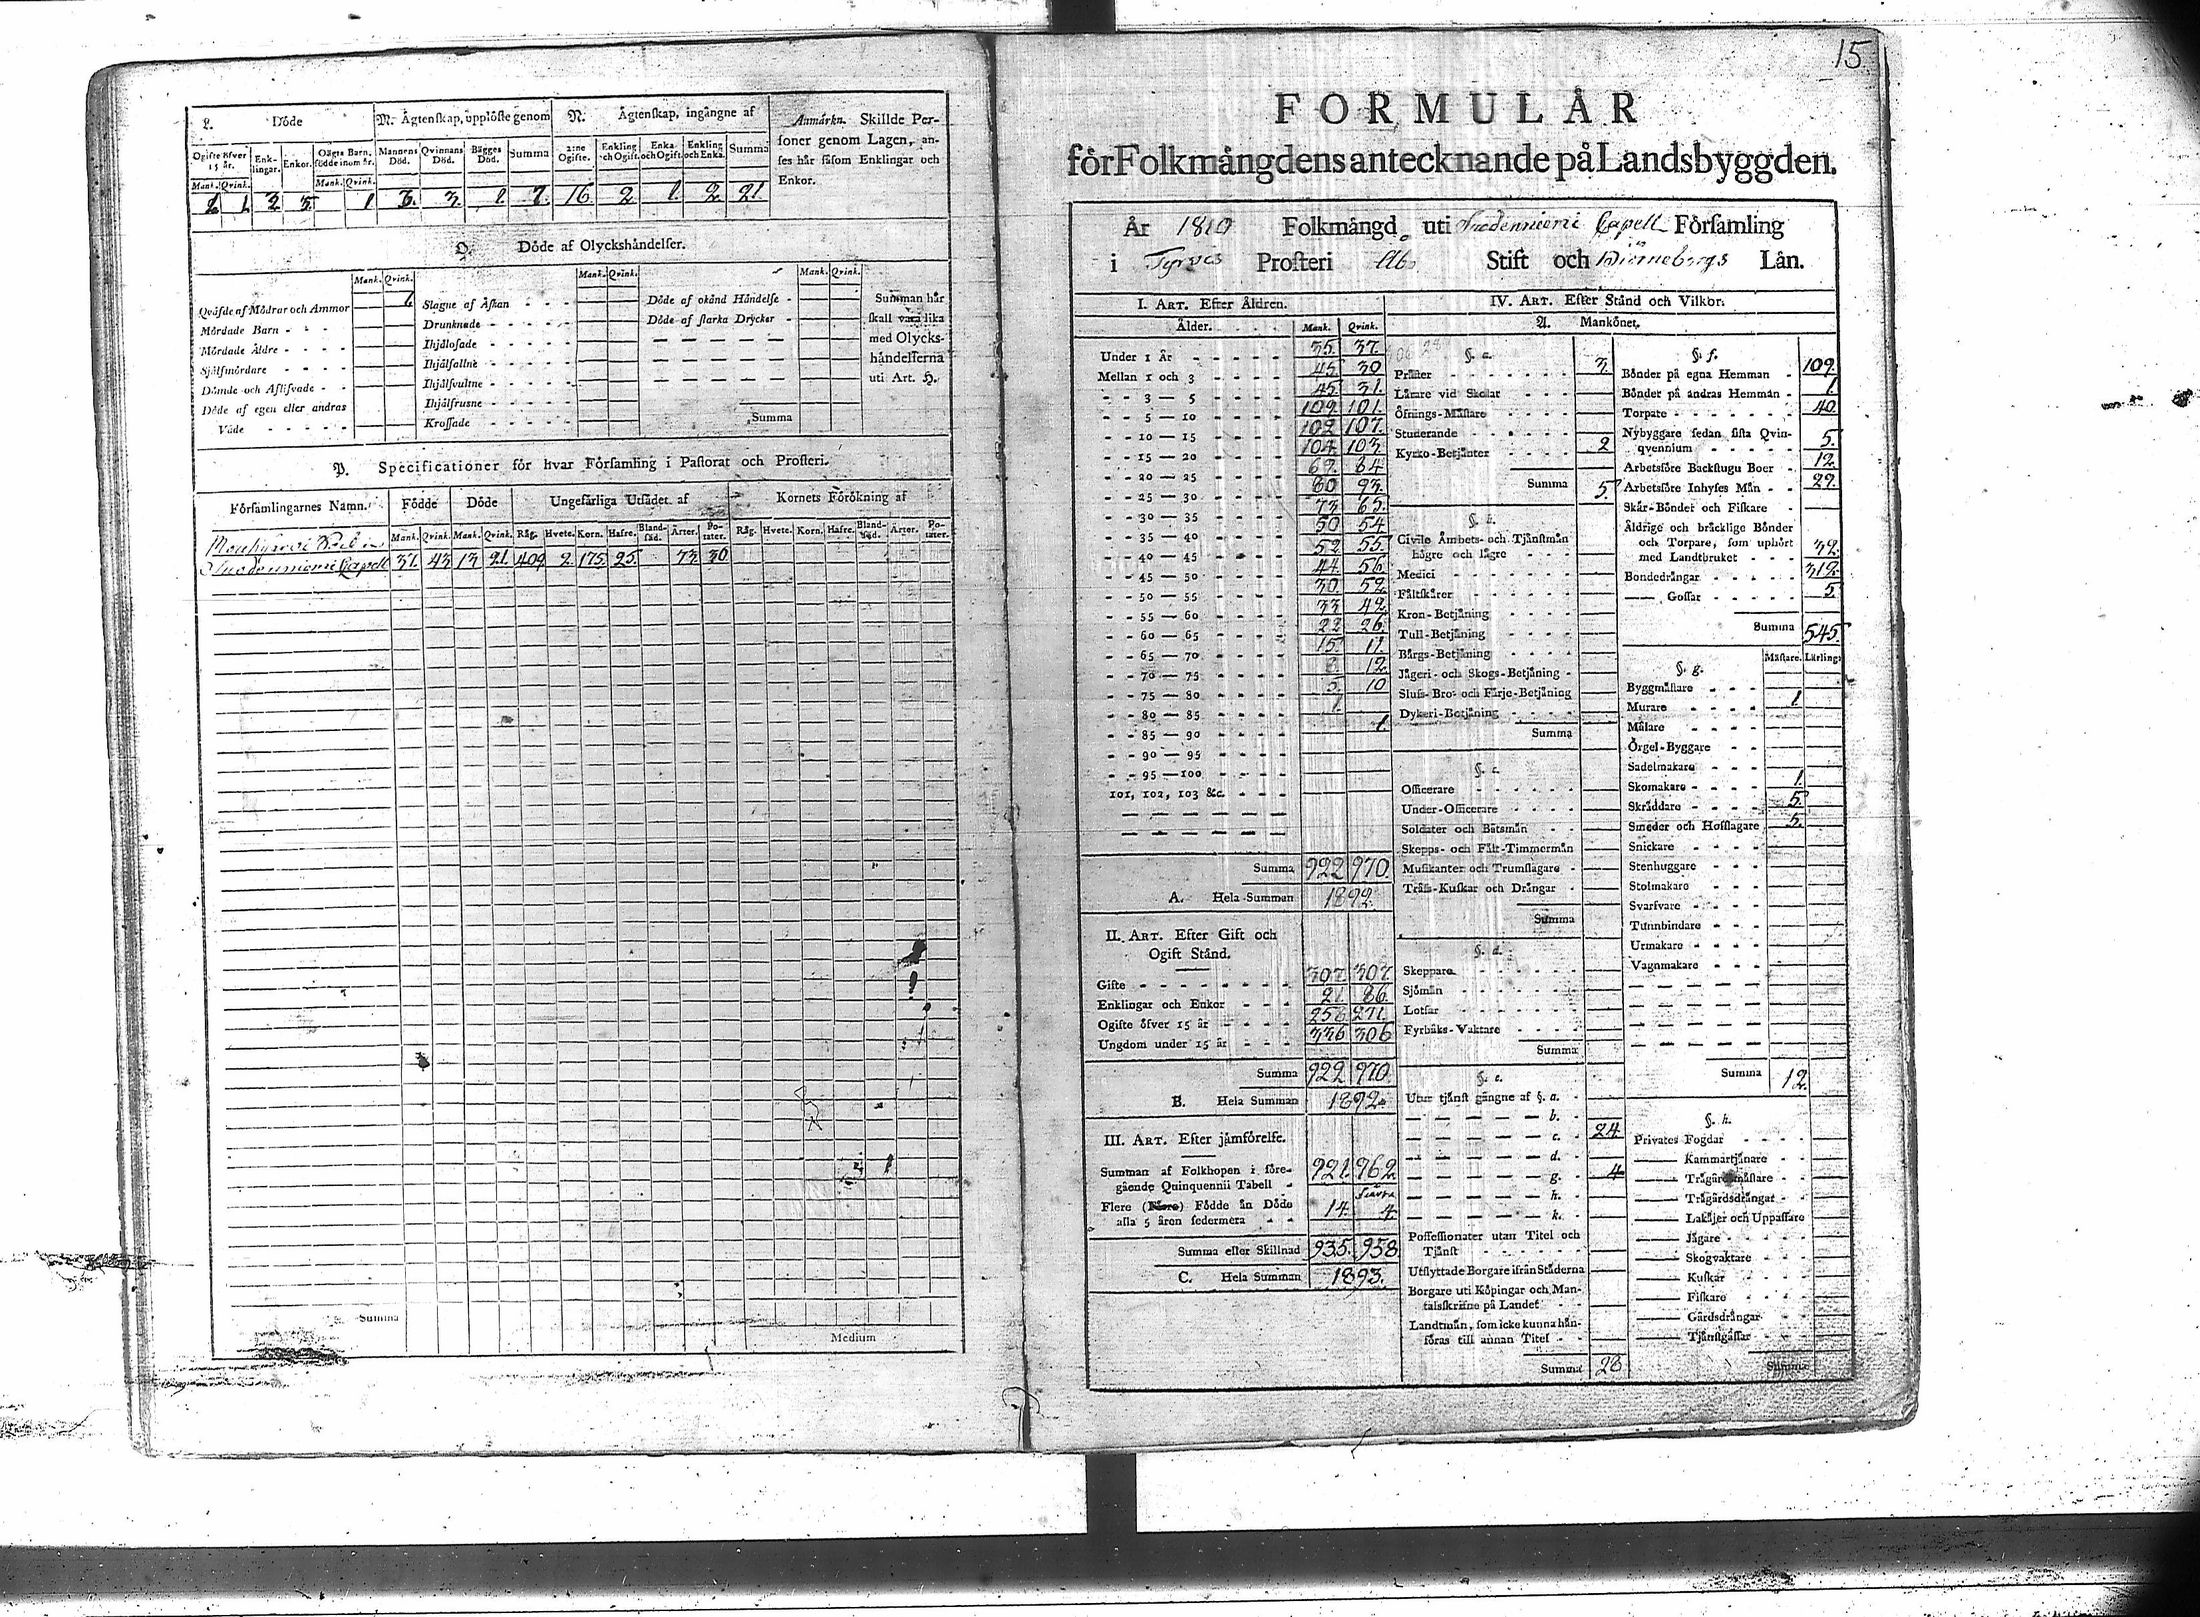 15
L. Döde
M. Ägtenskap, upplöste genom
N. Ägtenskap, ingångne af
Anmärkn. Skillde Personer genom Lagen, anses här såsom Enklingar och Enkor.
Ogifte öfver 15 år. Enklingar. Enkor. Oägta Barn, födde inom år. Mannens Död. Qvinnans Död. Bägges Död. Summa 2:ne Ogifte. Enkling och Ogift. Enka och Ogift. Enkling och Enka. Summa
Mank. Qvink. Mank. Qvink.
1 3. 3. 1. 7. 16. 2 1. 2. 21.
O. Döde af Olyckshändelser.
Mank. Qvink. Mank. Qvink. Mank. Qvink.
Qväfde af Mödrar och Ammor
Mördade Barn
Mördade Äldre
Självmördare
Dömde och Aflifvade
Döde af egen eller andras Våde
Slagne af Åskan
Drunknade
Ihjälosade
Ihjälfallne
Ihjälsvultne
Ihjälfrusne
Krossade
Döde af okänd Händelse
Döde af starka Drycker
Summa
Summan här skall vara lika med Olyckshändelserna uti Art. H.
P. Specificationer för hvar Församling i Pastorat och Prosteri.
Församlingarnes Namn. Födde Döde Ungefärliga Utsädet af Kornets Förökning af
Mank. Qvink. Mank. Qvink. Råg. Hvete. Korn. Hafre. Blandsäd. Ärter. Potäter. Råg. Hvete. Korn. Hafre. Blandsäd. Ärter. Potäter.
Suodenniemi Capell 37. 43 13 21. 409 2. 175. 25. 73. 30.
Summa
Medium
FORMULÄR
för Folkmängdens antecknande på Landsbyggden.
År 1810 Folkmängd uti Suodenniemi Capell Församling
i Tyrvis Prosteri Åbo Stift och Biörneborgs Län.
I. ART. Efter Åldren.
Ålder. Mank. Qvink.
Under 1 År 35. 37.
Mellan 1 och 3 45. 30
3 — 5 45. 31.
5 — 10 109. 101.
10 — 15 102 107.
15 — 20 104. 103.
20 — 25
25 — 30 60 93.
30 — 35 73 65.
35 — 40 50 54
40 — 45 52 55
45 — 50 44. 56.
50 — 55 30. 52.
55 — 60 33 42.
60 — 65 22 26.
65 — 70 15. 11.
70 — 75 8. 12.
75 — 80 5. 10
80 — 85 1.
85 — 90 1.
90 — 95
95 — 100
101, 102, 103 &c.
Summa 922 970.
A. Hela Summan 1892.
II. ART. Efter Gift och Ogift Stånd.
Gifte 307. 307.
Enklingar och Enkor 21. 86.
Ogifte öfver 15 år 258 271.
Ungdom under 15 år 336 306
Summa 922 970.
B. Hela Summan 1892.
III. ART. Efter jämförelse.
Summan af Folkhopen i föregående Quinquennii Tabell 921. 962
Flere (Färre) Födde än Döde alla 5 åren sedermera 14. 4.
Summa efter Skillnad 935. 958
C. Hela Summan 1893.
IV. ART. Efter Stånd och Vilkor.
A. Mankönet.
§. a.
Präster 3.
Lärare vid Skolar
Öfnings-Mästare
Studerande
Kyrko-Betjänter 2
Summa 5
§. b.
Civile Ämbets- och Tjänstmän högre och lägre
Medici
Fältskärer
Kron-Betjäning
Tull-Betjäning
Bärgs-Betjäning
Jägeri- och Skogs-Betjäning
Sluss- Bro- och Färje-Betjäning
Dykeri-Betjäning
Summa
§. c.
Officerare
Under-Officerare
Soldater och Båtsmän
Skepps- och Fält-Timmermän
Musikanter och Trumslagare
Träss-Kuskar och Drängar
Summa
§. d.
Skeppare
Sjömän
Lotsar
Fyrbåks-Vaktare
Summa
§. e.
Utur tjänst gångne af §. a.
b.
c. 24.
d.
g. 4
h.
k.
Possessionater utan Titel och Tjänst
Utflyttade Borgare ifrån Städerna
Borgare uti Köpingar och Mantalsskrifne på Landet
Landtmän, som icke kunna hänföras till annan Titel
Summa 28
§. f.
Bönder på egna Hemman 109.
Bönder på andras Hemman 1.
Torpare 40.
Nybyggare sedan sista Qvinqvennium 5.
Arbetsföre Backstugu Boer 12.
Arbetsföre Inhyses Män 29.
Skär-Bönder och Fiskare
Äldrige och bräcklige Bönder och Torpare, som uphört med Landtbruket 32.
Bondedrängar 312.
Gossar 5.
Summa 545.
§. g. Mästare. Lärling:
Byggmästare
Murare 1.
Målare
Orgel-Byggare
Sadelmakare
Skomakare 1.
Skräddare 5.
Smeder och Hofslagare 5.
Snickare
Stenhuggare
Stolmakare
Svarfvare
Tunnbindare
Urmakare
Vagnmakare
Summa 12.
§. h.
Privates Fogdar
Kammartjänare
Trägårdsmästare
Trägårdsdrängar
Lakäjer och Uppassare
Jägare
Skogvaktare
Kuskar
Fiskare
Gårdsdrängar
Tjänstgåssar
Summa